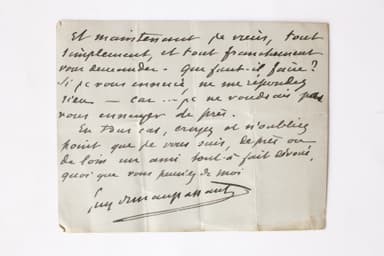 Et maintenant je viens, tout
simplement, et tout franchement
vous demander - que faut-il faire?
Si je vous ennuie ne me répondez
rien - car ... je ne voudrais pas
vous ennuyer de près.
En tous cas, croyez et n'oubliez
point que je vous suis, de près ou
de loin un ami tout à fait dévoué,
quoi que vous pensiez de moi
Guy de Maupassant